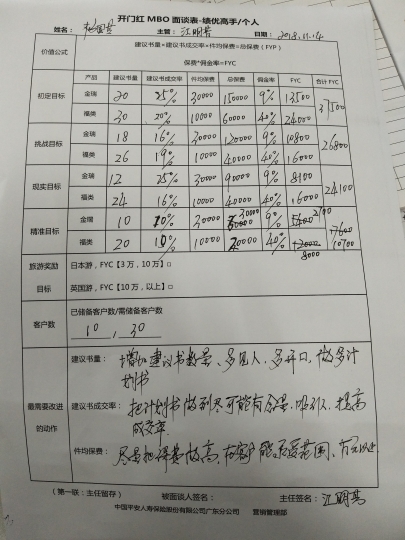 开门红 MBO 面谈表-绩优高手/个人
姓名： 主管：江明芸 日期：2018.11.14
价值公式 建议书量*建议书成交率*件均保费=总保费（FYP）
保费*佣金率=FYC
产品 建议书量 建议书成交率 件均保费 总保费 佣金率 FYC 合计 FYC
初定目标 金瑞 20 25% 30000 150000 9% 13500 37500
福类 30 20% 10000 60000 40% 24000
挑战目标 金瑞 18 16% 30000 120000 9% 10800 26800
福类 26 19% 10000 40000 40% 16000
现实目标 金瑞 12 25% 30000 90000 9% 8100 24100
福类 24 16% 10000 40000 40% 16000
精准目标 金瑞 10 10% 30000 30000 9% 5400 2700 17600 10700
福类 20 10% 10000 20000 40% 12000 8000
旅游奖励 日本游，FYC【3 万，10 万】□
目标 英国游，FYC【10 万，以上】□
客户数 已储备客户数/需储备客户数
10 , 30
建议书量： 增加建议书数量、多见人、多开口、做多计
划书
最需要改进 建议书成交率： 把计划书做到尽可能有 吸引，提高
的动作 成交率
件均保费： 尽量把保费做高，
（第一联：主任留存） 被面谈人签名： 主任签名：江明芸
中国平安人寿保险股份有限公司广东分公司 营销管理部